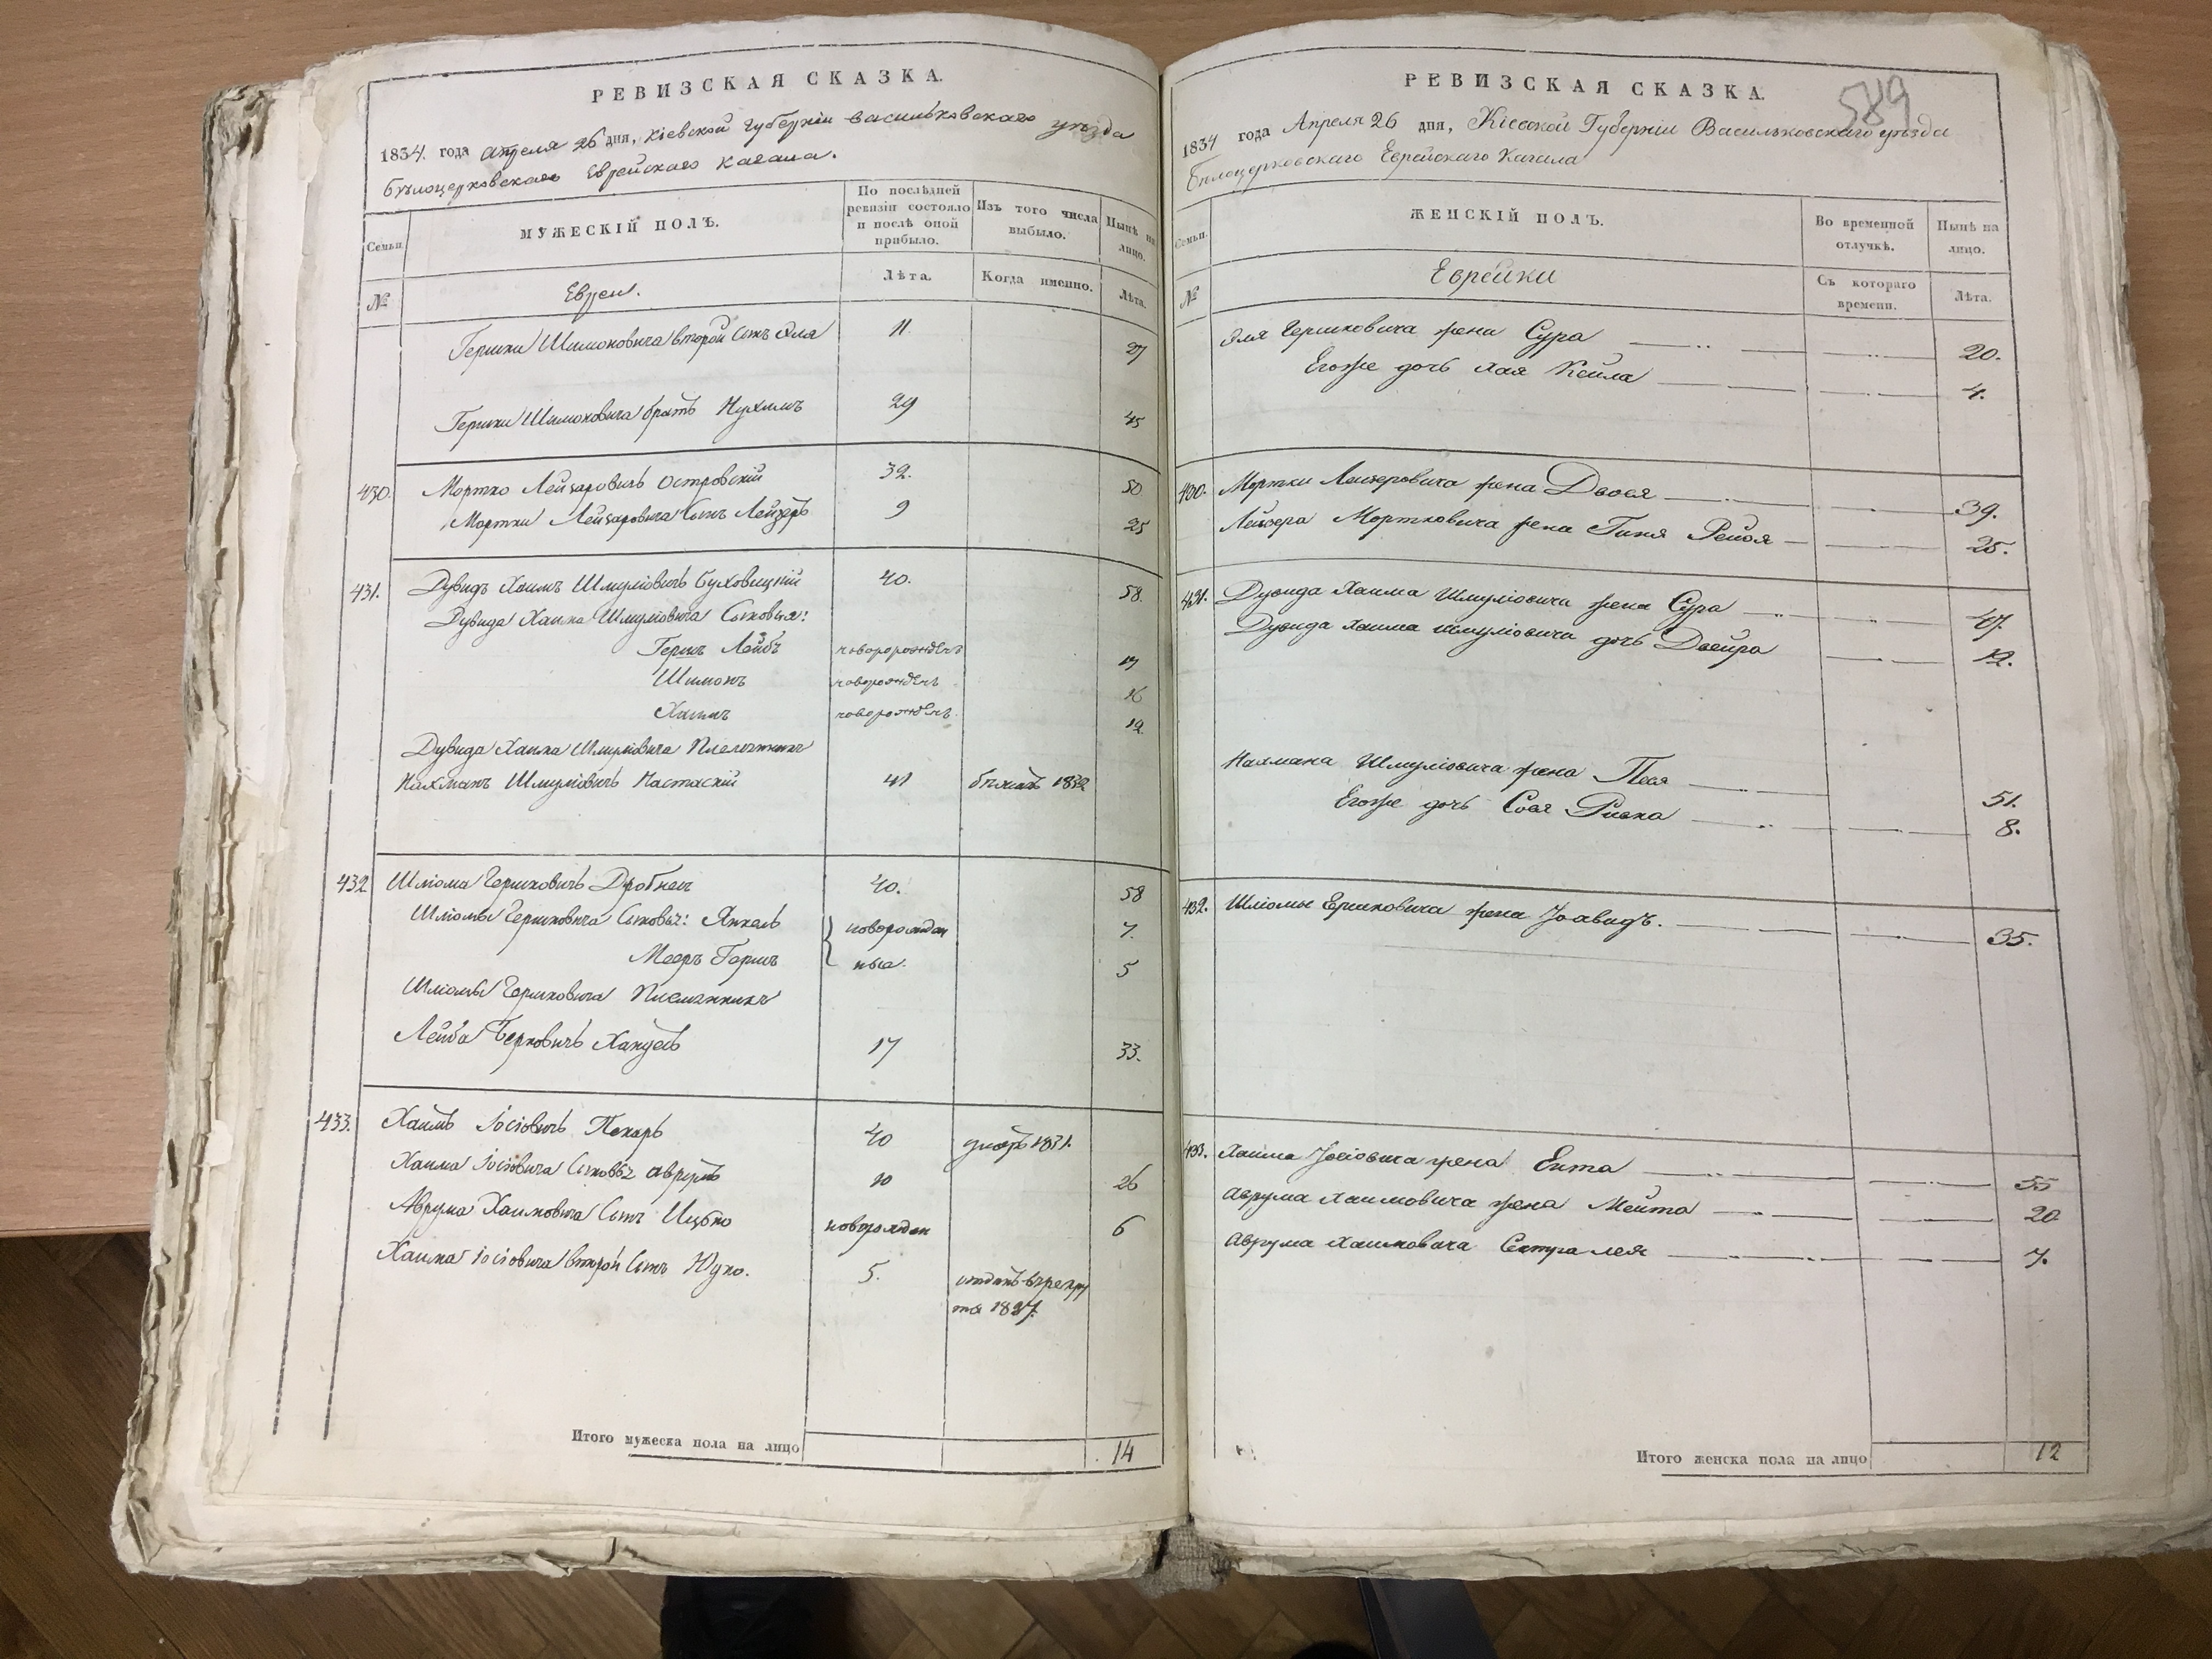 РЕВИЗСКАЯ СКАЗКА.
1834. года Апреля 26 дня, Кіевской Губерніи Васильковскаго уѣзда
Бѣлоцерковскаго Еврейскаго Кагала.
Семьи.
МУЖЕСКІЙ ПОЛЪ.
По послѣдней ревизіи состояло и послѣ оной прибыло.
Изъ того числа выбыло.
Нынѣ на лицо.
№
Евреи.
Лѣта.
Когда именно.
Лѣта.
Гершки Шимоновича второй сынъ Эля 11. 27
Гершки Шимоновича братъ Нухимъ 29 45
430. Мортко Лейзаровичъ Островскій 32. 50
Мортки Лейзаровича сынъ Лейзеръ 9 25
431. Дувидъ Хаимъ Шмуліовичъ 40. 58.
Дувида Хаима Шмуліовича сыновья:
Гершъ Лейбъ 17
Шимонъ новорожденъ 16
Хаимъ новорожденъ. 12
Дувида Хаима Шмуліовича Племянникъ
Нахманъ Шмуліовичъ 41 бѣжалъ 1832
432 Шліома Гершковичъ 40. 58
Шліомы Гершковича сыновья: Янкель новорожден 7.
Мееръ Гершъ ные. 5
Шліомы Гершковича Племянникъ
Лейба Берковичъ 17 33.
433. Хаимъ Іосіовичъ Пекарь 40 умеръ 1831.
Хаима Іосіовича сыновья Аврумъ 10 26
Аврума Хаимовича сынъ Ицько новорожден 6
Хаима Іосіовича второй сынъ Юдко. 5. отданъ въ рекру
та 1827.
Итого мужеска пола на лицо 14
589
РЕВИЗСКАЯ СКАЗКА.
1834 года Апреля 26 дня, Кіевской Губерніи Васильковскаго уѣзда
Бѣлоцерковскаго Еврейскаго Кагала
Семьи.
ЖЕНСКІЙ ПОЛЪ.
Во временной отлучкѣ.
Нынѣ на лицо.
№
Еврейки
Съ котораго времени.
Лѣта.
Эля Гершковича жена Сура 20.
Егоже дочь Хая Кейла 4.
430. Мортки Лейзеровича жена Двося 39.
Лейзера Мортковича жена Гиня Рейзя 25.
431. Дувида Хаима Шмуліовича жена Сура 47.
Дувида Хаима Шмуліовича дочь Двейра 12.
Нахмана Шмуліовича жена Песя 51.
Егоже дочь Сося Ривка 8.
432. Шліомы Ершковича жена 35.
433. Хаима Іосіовича жена Ента 55
Аврума Хаимовича жена Мейта 20
Аврума Хаимовича 7.
Итого женска пола на лицо 12